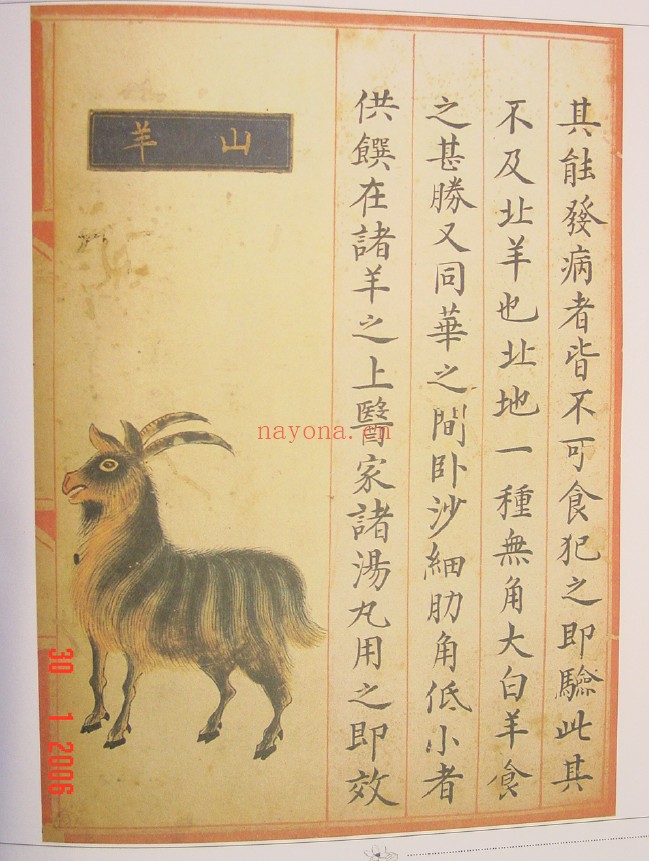 其能發病者皆不可食犯之即驗此其
不及北羊也北地一種無角大白羊食
之甚勝又同華之間卧沙細肋角低小者
供饌在諸羊之上醫家諸湯丸用之即效
山羊
nayona.cn
30 1 2006